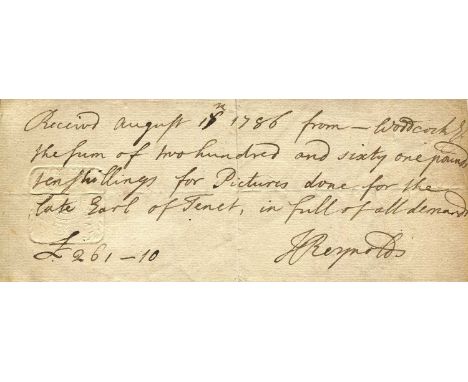 Receivd August 1786 from – Woodcock
the sum of two hundred and sixty one pounds
ten shillings for Pictures done for the
late Earl of Tenet, in full of all demands
£ 261 – 10 JReynolds